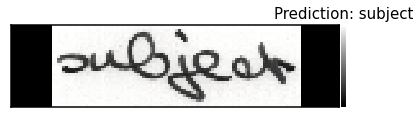 Prediction: subject
subject